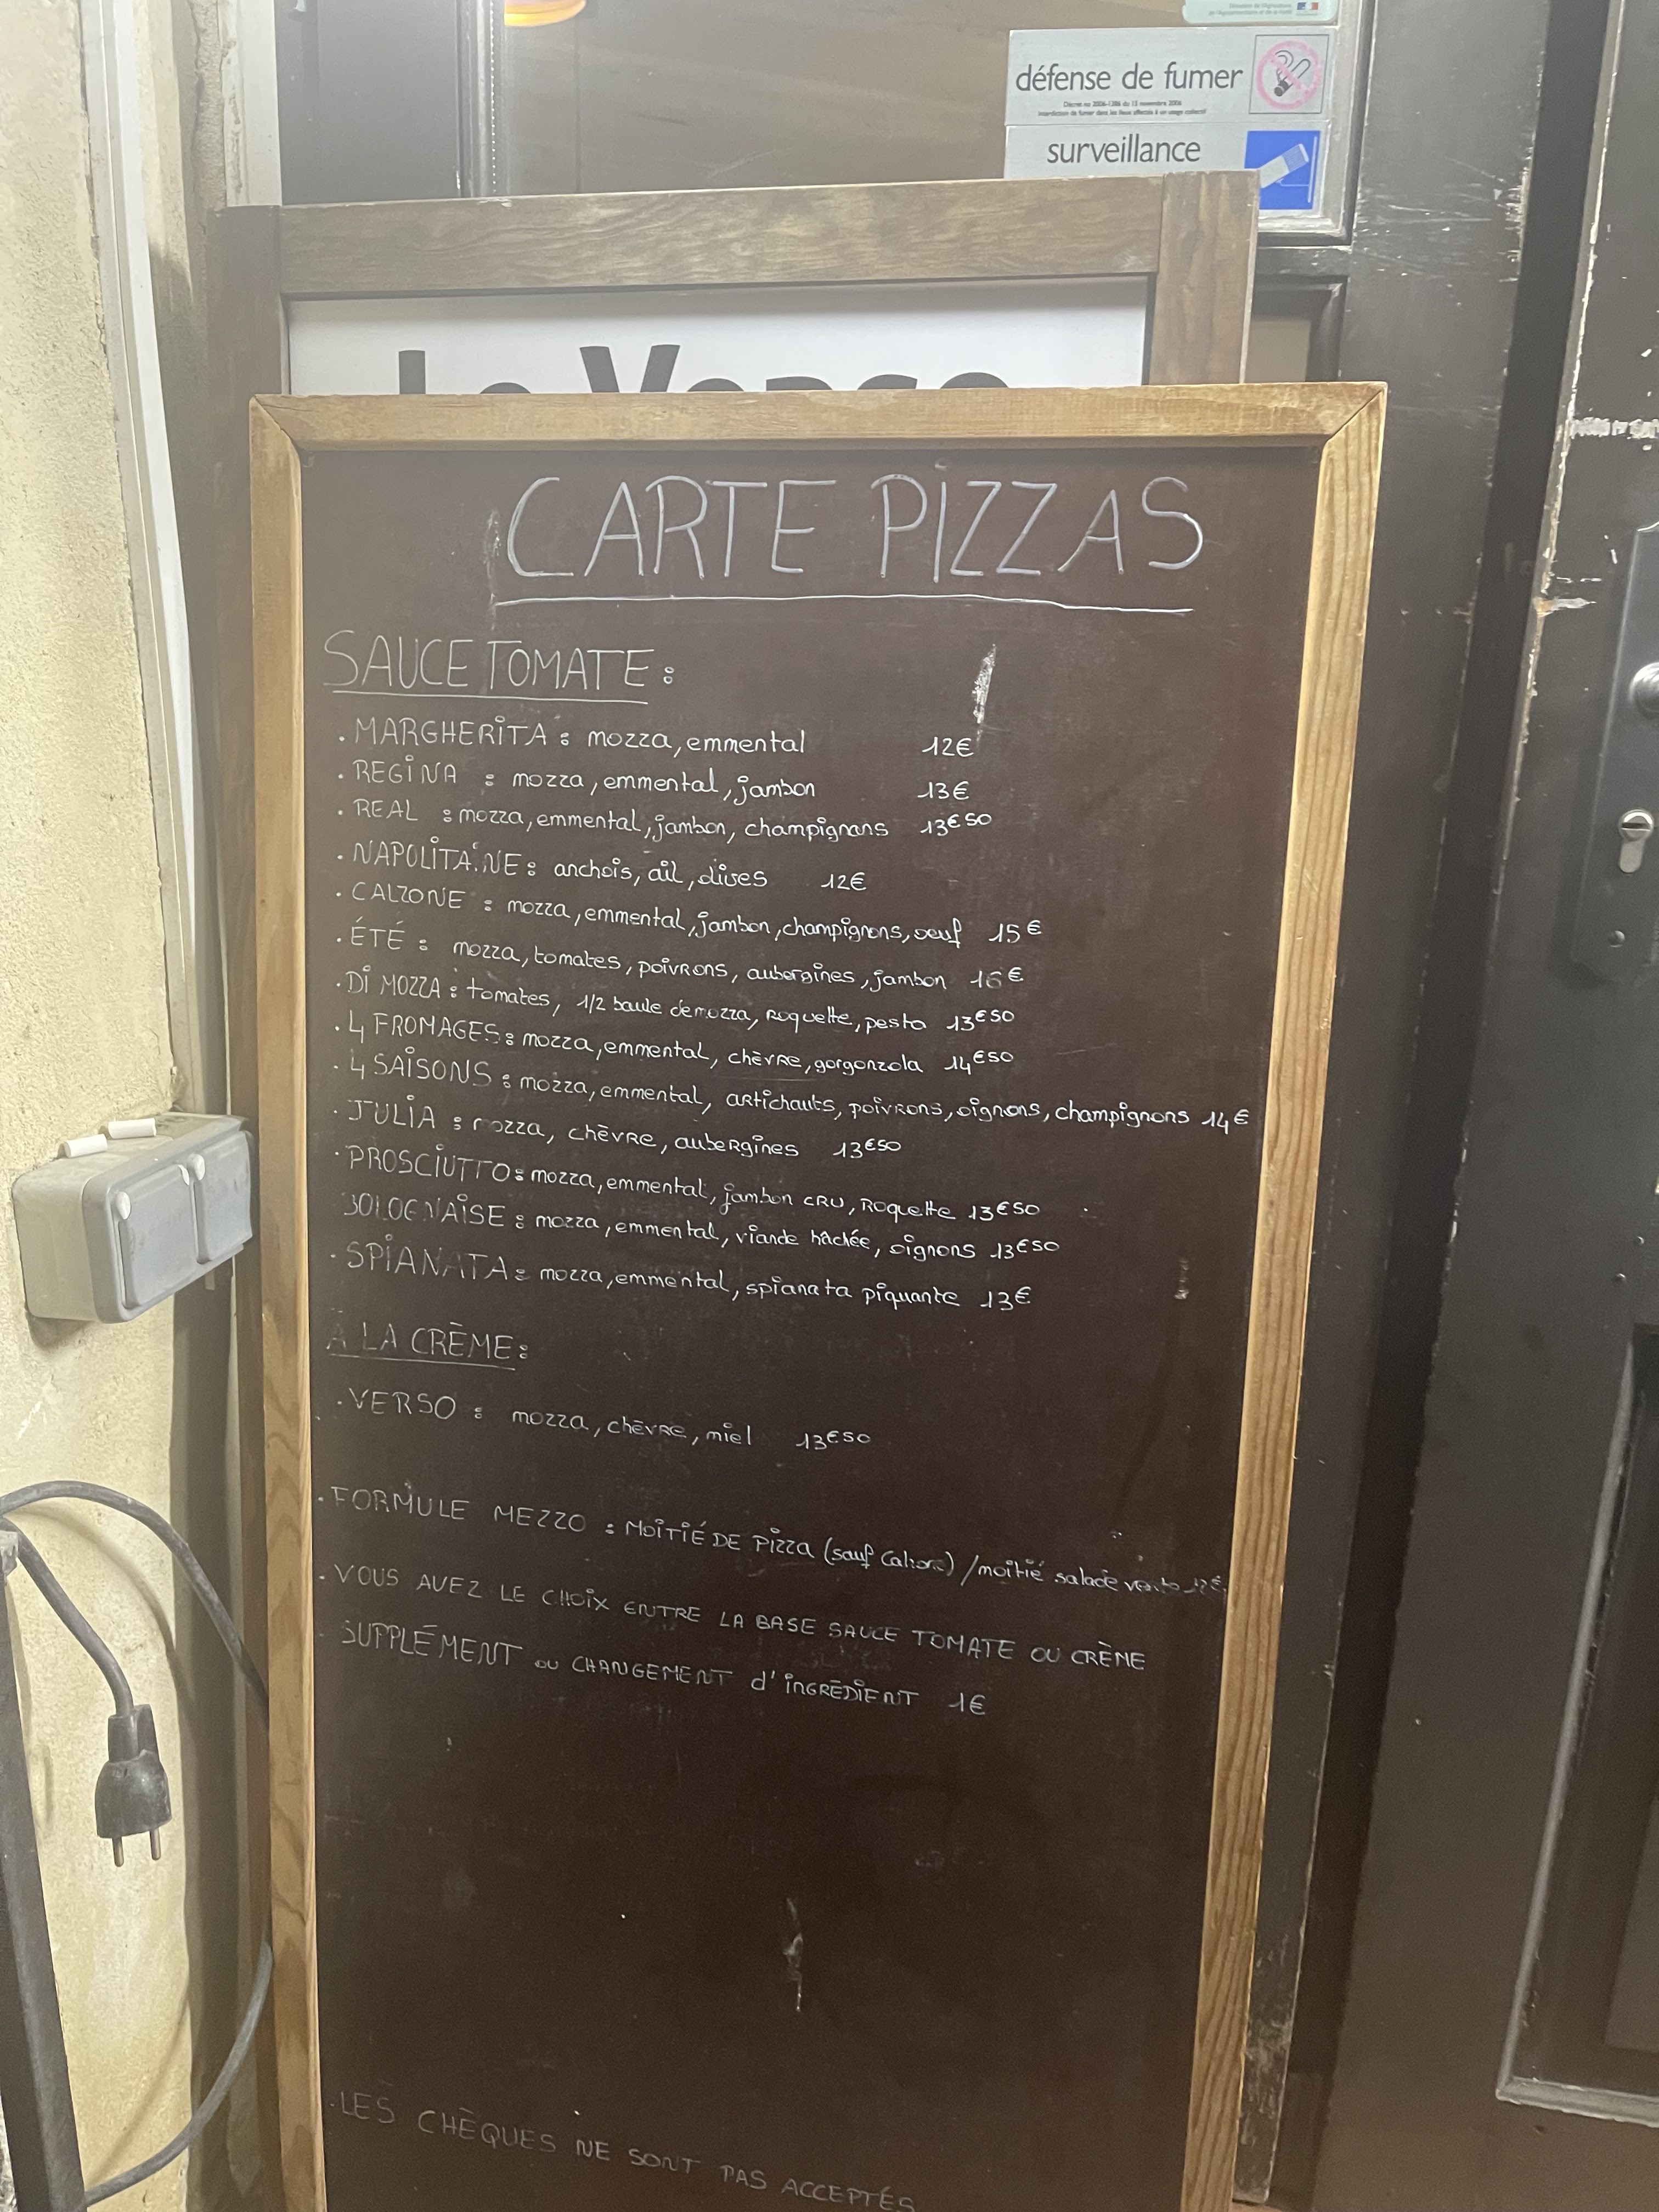 défense de fumer
Décret no 2006-1386 du 15 novembre 2006
interdiction de fumer dans les lieux affectés à un usage collectif
surveillance
CARTE PIZZAS
SAUCE TOMATE :
. MARGHERITA : mozza, emmental 12€
. REGINA : mozza, emmental, jambon 13€
. REAL : mozza, emmental, jambon, champignons 13€50
. NAPOLITAINE : anchois, ail, olives 12€
. CALZONE : mozza, emmental, jambon, champignons, oeuf 15€
. ÉTÉ : mozza, tomates, poivrons, aubergines, jambon 16€
. Di MOZZA : tomates, 1/2 boule de mozza, roquette, pesto 13€50
. 4 FROMAGES : mozza, emmental, chèvre, gorgonzola 14€50
. 4 SAISONS : mozza, emmental, artichauts, poivrons, oignons, champignons 14€
. JULIA : mozza, chèvre, aubergines 13€50
. PROSCIUTTO : mozza, emmental, jambon cru, roquette 13€50
BOLOGNAISE : mozza, emmental, viande hâchée, oignons 13€50
. SPIANATA : mozza, emmental, spianata piquante 13€
À LA CRÈME :
. VERSO : mozza, chèvre, miel 13€50
. FORMULE MEZZO : MOITIÉ DE PIZZA (sauf Calzone) / moitié salade verte
. VOUS AVEZ LE CHOIX ENTRE LA BASE SAUCE TOMATE OU CRÈME
. SUPPLÉMENT ou CHANGEMENT d'INGRÉDIENT 1€
. LES CHÈQUES NE SONT PAS ACCEPTÉS